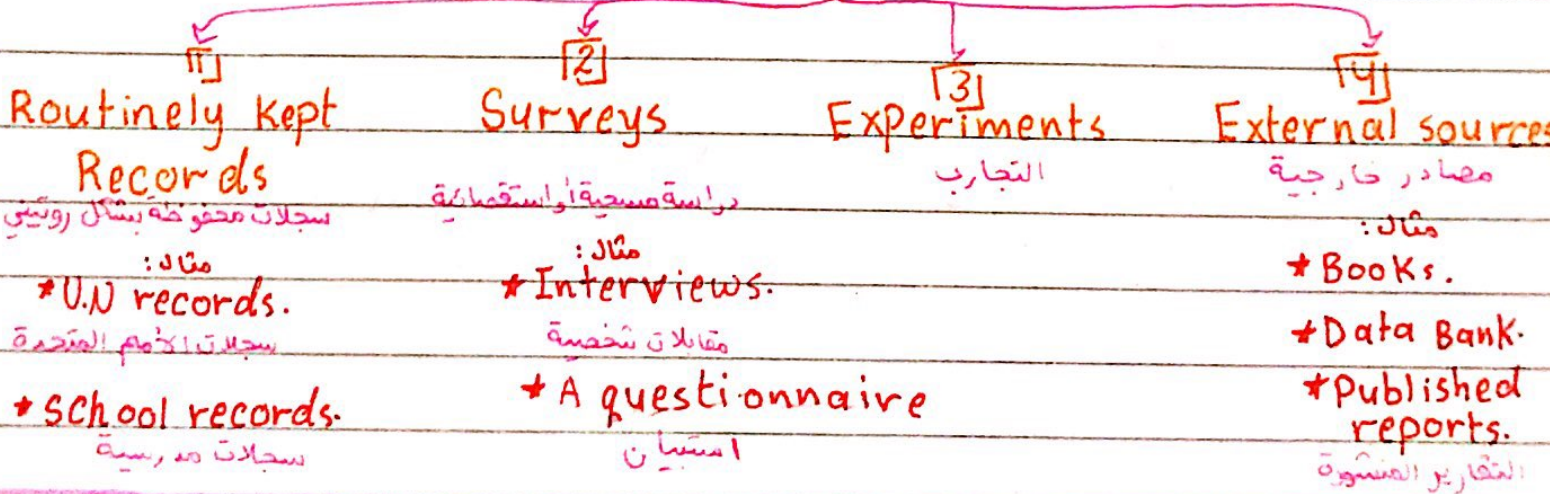 1
Routinely Kept
Records
سجلات محفوظة بشكل روتيني
مثال:
* U.N records.
سجلات الأمم المتحدة
* school records.
سجلات مدرسية
2
Surveys
دراسة مسحية أو استقصائية
مثال:
* Interviews.
مقابلات شخصية
* A questionnaire
استبيان
3
Experiments
التجارب
4
External sources
مصادر خارجية
مثال:
* Books.
* Data Bank.
* Published
reports.
التقارير المنشورة